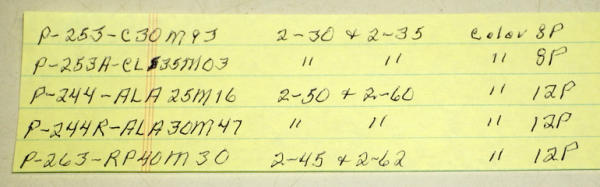 P-253-C30M93 2-30 & 2-35 Color 8P
P-253A-CL535M03 " " " 8P
P-244-ALA25M16 2-50 & 2-60 " 12P
P-244R-ALA30M47 " " " 12P
P-263-RP40M30 2-45 & 2-62 " 12P